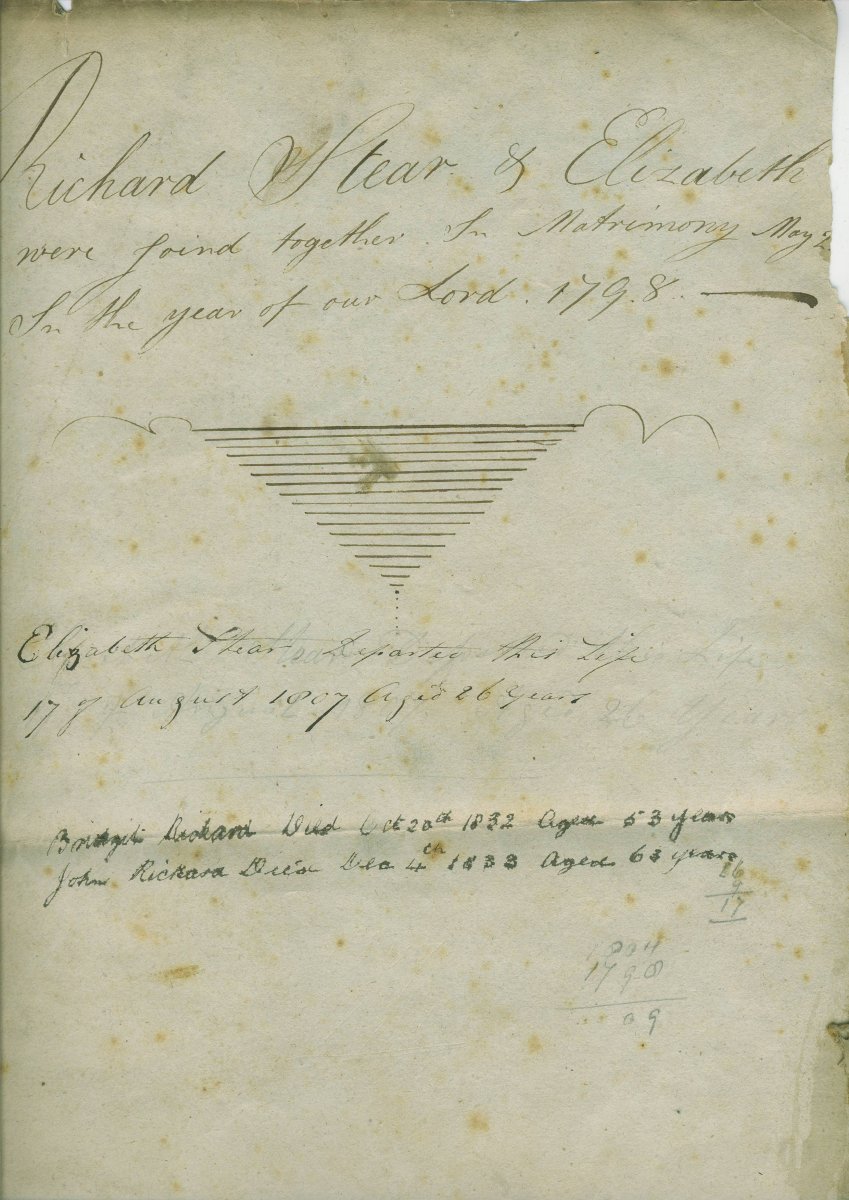 Richard Stear & Elizabeth
were Joind together In Matrimony May 2
In the year of our Lord. 1798.
Elizabeth Stear Departed this Life
17 of August 1807 Aged 26 Years
Bridget Rickard Died Oct 20th 1832 Aged 53 years
John Rickard Died Dec 4th 1833 Aged 63 years
26
9
17
1798
09